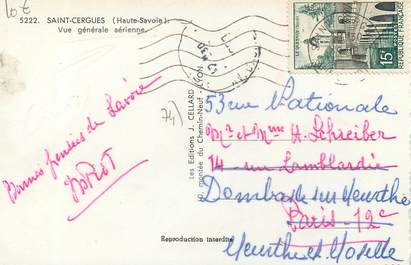 10€
5222. SAINT-CERGUES (Haute-Savoie):
Vue générale aérienne.
15F
74)
Bonnes pensées de Savoie
Les Editions J. CELLARD
montée du Chemin-Neuf
LYON
53 rue Nationale
Mr et Mme H. Schreiber
14 rue Lamblardie
Dombasle sur Meurthe
Paris-12e
Meurthe et Moselle
Reproduction interdite